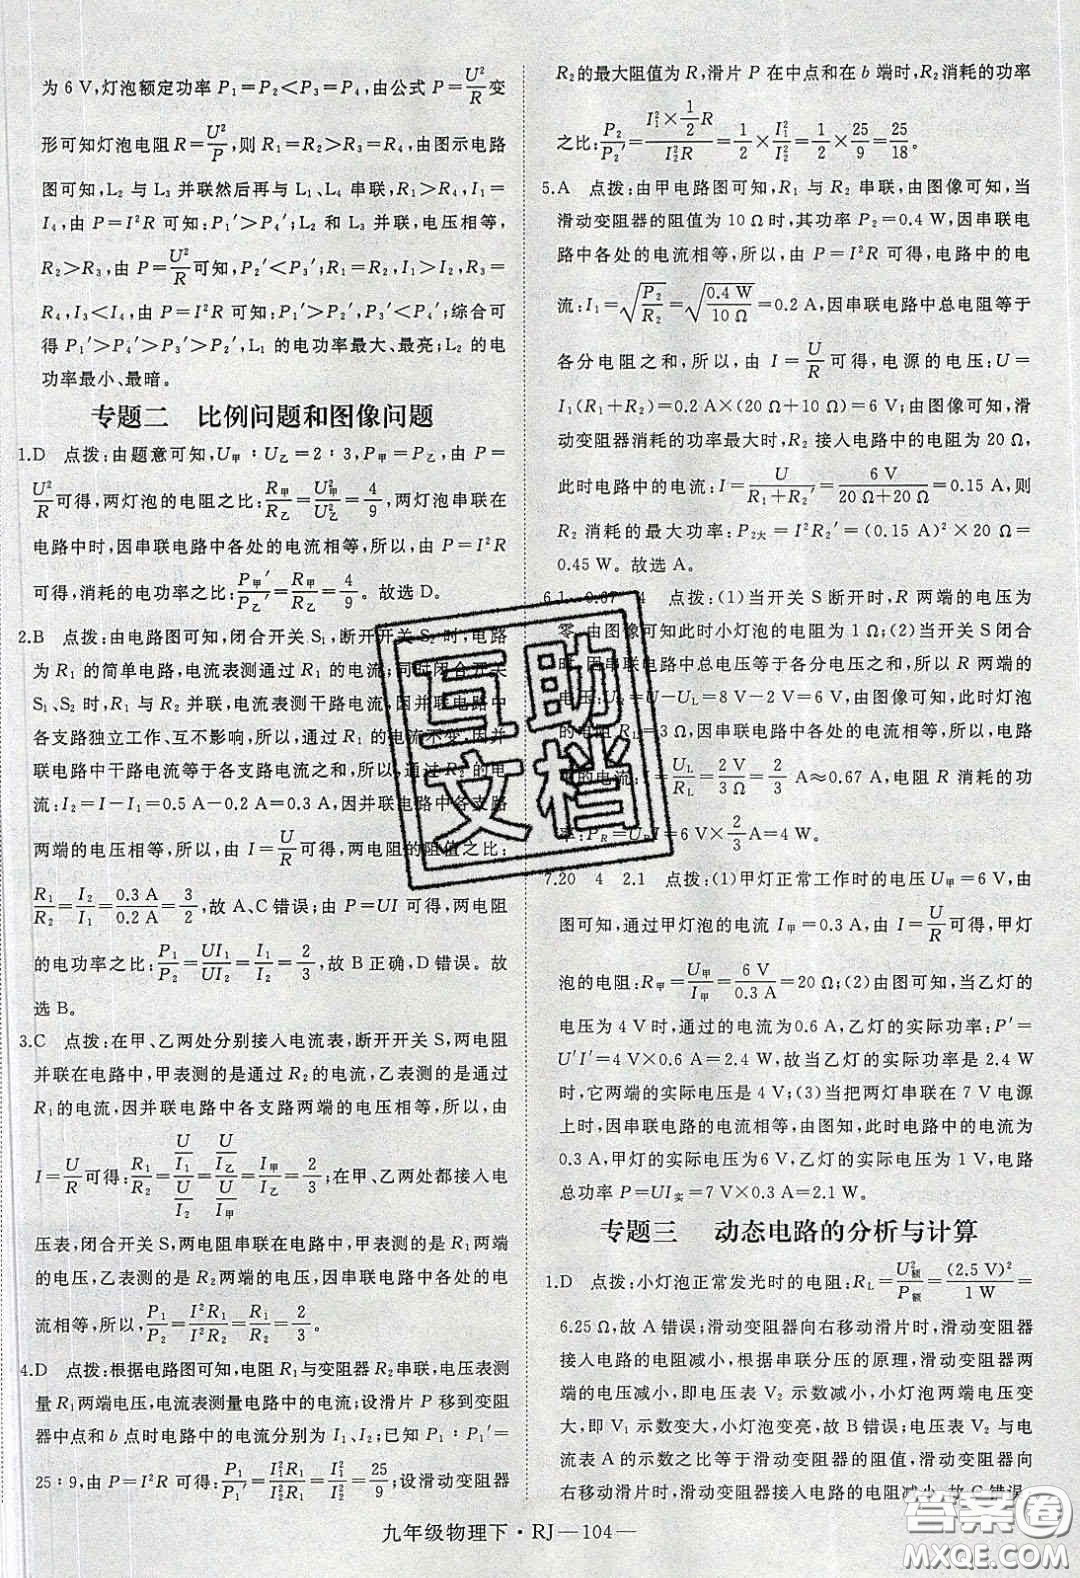 为 6 V,灯泡额定功率 P₁=P₂<P₃=P₄,由公式 P=U²/R 变
形可知灯泡电阻 R=U²/P,则 R₁=R₂>R₃=R₄,由图示电路
图可知,L₂ 与 L₃ 并联然后再与 L₁、L₄ 串联,R₁>R₄,I₁=
I₄,由 P=I²R 可知:P₁′>P₄′;L₂ 和 L₃ 并联,电压相等,
R₂>R₃,由 P=U²/R 可知,P₂′<P₃′;由于 R₃=
R₄,I₃<I₄,由 P=I²R 可知:P₄′>P₃′。综合可
得 P₁′>P₄′>P₃′>P₂′,L₁ 的电功率最大、最亮;L₂ 的电
功率最小、最暗。
专题二 比例问题和图像问题
1.D 点拨:由题意可知,U甲∶U乙=2∶3,P甲=P乙,由 P=
U²/R 可得,两灯泡的电阻之比:R甲/R乙=U²甲/U²乙=4/9,两灯泡串联在
电路中时,因串联电路中各处的电流相等,所以,由 P=I²R
可得,消耗的电功率之比:P甲′/P乙′=R甲/R乙=4/9。故选 D。
2.B 点拨:由电路图可知,闭合开关 S₁,断开开关 S₂ 时,电路
为 R₁ 的简单电路,电流表测通过 R₁ 的电流;同时闭合开关
S₁、S₂ 时,R₁ 与 R₂ 并联,电流表测干路电流,因并联电路中
各支路独立工作、互不影响,所以,通过 R₁ 的电流不变,因并
联电路中干路电流等于各支路电流之和,所以,通过 R₂ 的电
流:I₂=I-I₁=0.5 A-0.2 A=0.3 A,因并联电路中各支路
两端的电压相等,所以,由 I=U/R 可得,两电阻的阻值之比:
R₁/R₂=I₂/I₁=0.3 A/0.2 A=3/2,故 A、C 错误;由 P=UI 可得,两电阻
的电功率之比:P₁/P₂=UI₁/UI₂=I₁/I₂=2/3,故 B 正确,D 错误。故
选 B。
3.C 点拨:在甲、乙两处分别接入电流表,断开开关 S,两电阻
并联在电路中,甲表测的是通过 R₂ 的电流,乙表测的是通过
R₁的电流,因并联电路中各支路两端的电压相等,所以,由
I=U/R可得:R₁/R₂=(U/I₁)/(U/I₂)=(U/I乙)/(U/I甲)=I甲/I乙=2/3;在甲、乙两处都接入电
压表,闭合开关 S,两电阻串联在电路中,甲表测的是 R₁ 两端
的电压,乙表测的是 R₂ 两端的电压,因串联电路中各处的电
流相等,所以:P₁/P₂=I²R₁/I²R₂=R₁/R₂=2/3。
4.D 点拨:根据电路图可知,电阻 R₁与变阻器 R₂串联,电压表测
量 R₁两端电压,电流表测量电路中的电流;设滑片 P 移到变阻
器中点和 b 点时电路中的电流分别为 I₁、I₂;已知 P₁∶P₁′=
25∶9,由 P=I²R 可得:P₁/P₁′=I₁²R₁/I₂²R₁=I₁²/I₂²=25/9;设滑动变阻器
R₂的最大阻值为 R,滑片 P 在中点和在 b 端时,R₂消耗的功率
之比:P₂/P₂′=(I₁²×1/2R)/(I₂²R)=1/2×I₁²/I₂²=1/2×25/9=25/18。
5.A 点拨:由甲电路图可知,R₁ 与 R₂ 串联,由图像可知,当
滑动变阻器的阻值为 10 Ω时,其功率 P₂=0.4 W,因串联电
路中各处的电流相等,所以,由 P=I²R 可得,电路中的电
流:I₁=√(P₂/R₂)=√(0.4 W/10 Ω)=0.2 A,因串联电路中总电阻等于
各分电阻之和,所以,由 I=U/R 可得,电源的电压:U=
I₁(R₁+R₂)=0.2 A×(20 Ω+10 Ω)=6 V;由图像可知,滑
动变阻器消耗的功率最大时,R₂ 接入电路中的电阻为 20 Ω,
此时电路中的电流:I=U/(R₁+R₂′)=6 V/(20 Ω+20 Ω)=0.15 A,则
R₂ 消耗的最大功率:P₂大=I²R₂′=(0.15 A)²×20 Ω=
0.45 W。故选 A。
6.1 0.67 4 点拨:(1)当开关 S断开时,R 两端的电压为
零,由图像可知此时小灯泡的电阻为 1 Ω;(2)当开关 S闭合
时,因串联电路中总电压等于各分电压之和,所以 R 两端的
电压:U_R=U-U_L=8 V-2 V=6 V,由图像可知,此时灯泡
的电阻 R_L=3 Ω,因串联电路中各处的电流相等,所以,电路
中的电流:I=U_L/R_L=2 V/3 Ω=2/3 A≈0.67 A,电阻 R 消耗的功
率:P_R=U_R I=6 V×2/3 A=4 W。
7.20 4 2.1 点拨:(1)甲灯正常工作时的电压 U甲=6 V,由
图可知,通过甲灯泡的电流 I甲=0.3 A,由 I=U/R可得,甲灯
泡的电阻:R甲=U甲/I甲=6 V/0.3 A=20 Ω;(2)由图可知,当乙灯的
电压为 4 V时,通过的电流为0.6 A,乙灯的实际功率:P′=
U′I′=4 V×0.6 A=2.4 W,故当乙灯的实际功率是 2.4 W
时,它两端的实际电压是 4 V;(3)当把两灯串联在 7 V 电源
上时,因串联电路的电流相等,由图可知,此时电路中的电流为
0.3 A,甲灯的实际电压为6 V,乙灯的实际电压为 1 V,电路
总功率 P=UI实=7 V×0.3 A=2.1 W。
专题三 动态电路的分析与计算
1.D 点拨:小灯泡正常发光时的电阻:R_L=U²额/P额=(2.5 V)²/1 W=
6.25 Ω,故 A 错误;滑动变阻器向右移动滑片时,滑动变阻器
接入电路的电阻减小,根据串联分压的原理,滑动变阻器两
端的电压减小,即电压表 V₂ 示数减小,小灯泡两端电压变
大,即 V₁ 示数变大,小灯泡变亮,故 B 错误;电压表 V₂ 与电
流表 A 的示数之比等于滑动变阻器的阻值,滑动变阻器向
右移动滑片时,滑动变阻器接入电路的电阻减小,故 C 错误
九年级物理下·RJ—104—
互助文档
答案圈
MXQE.COM